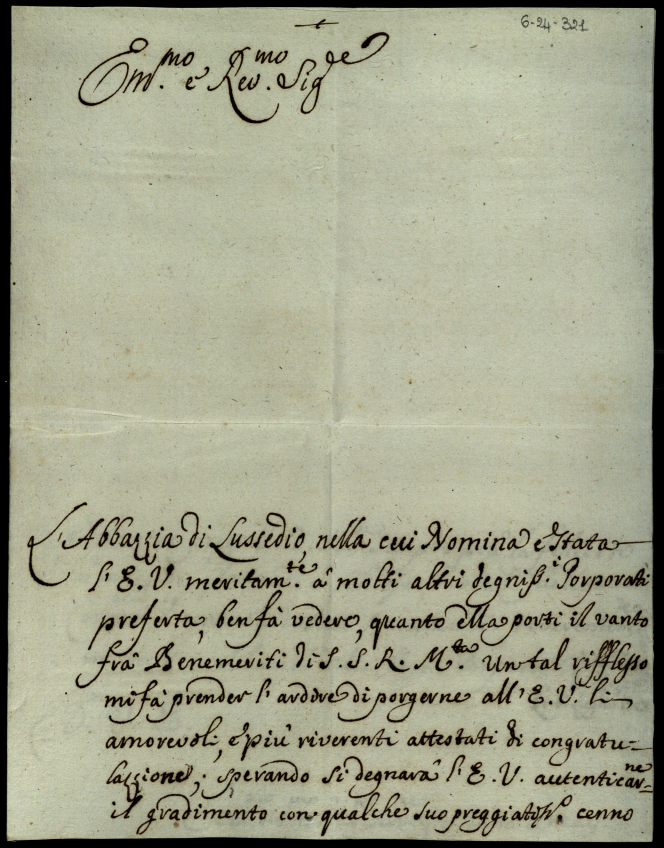 6-24-321
Em.mo e Rev.mo Sig.re
L'Abbazzia di Lussedio, nella cui Nomina è stata
l'E. V. meritam.te à molti altri degniss.i Porporati
preferta, ben fà vedere, quanto ella porti il vanto
frà Benemeriti di S. S. R. M.tà Un tal rifflesso
mi fà prender l'ardire di porgerne all'E. V. li
amorevoli, e più riverenti attestati di congratu-
lazzione; sperando si degnarà l'E. V. autenticarne
il gradimento con qualche suo preggiatiss.o cenno